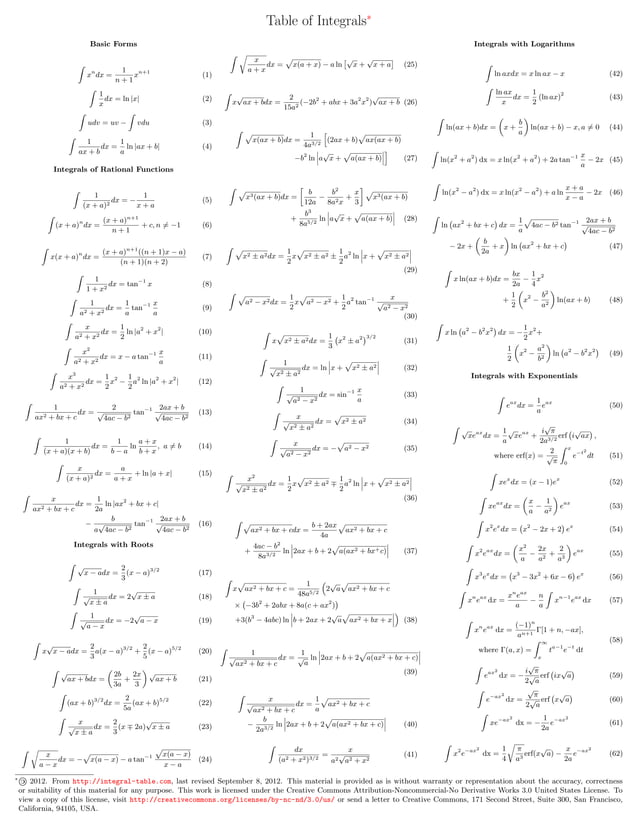 Table of Integrals*
Basic Forms
∫ xⁿdx = 1/(n+1) xⁿ⁺¹ (1)
∫ 1/x dx = ln |x| (2)
∫ udv = uv − ∫ vdu (3)
∫ 1/(ax + b) dx = 1/a ln |ax + b| (4)
Integrals of Rational Functions
∫ 1/(x + a)² dx = − 1/(x + a) (5)
∫ (x + a)ⁿdx = (x + a)ⁿ⁺¹/(n + 1) + c, n ≠ −1 (6)
∫ x(x + a)ⁿdx = (x + a)ⁿ⁺¹((n + 1)x − a)/((n + 1)(n + 2)) (7)
∫ 1/(1 + x²) dx = tan⁻¹ x (8)
∫ 1/(a² + x²) dx = 1/a tan⁻¹ x/a (9)
∫ x/(a² + x²) dx = 1/2 ln |a² + x²| (10)
∫ x²/(a² + x²) dx = x − a tan⁻¹ x/a (11)
∫ x³/(a² + x²) dx = 1/2 x² − 1/2 a² ln |a² + x²| (12)
∫ 1/(ax² + bx + c) dx = 2/√(4ac − b²) tan⁻¹ (2ax + b)/√(4ac − b²) (13)
∫ 1/((x + a)(x + b)) dx = 1/(b − a) ln (a + x)/(b + x), a ≠ b (14)
∫ x/(x + a)² dx = a/(a + x) + ln |a + x| (15)
∫ x/(ax² + bx + c) dx = 1/(2a) ln |ax² + bx + c|
− b/(a√(4ac − b²)) tan⁻¹ (2ax + b)/√(4ac − b²) (16)
Integrals with Roots
∫ √(x − a) dx = 2/3 (x − a)^(3/2) (17)
∫ 1/√(x ± a) dx = 2√(x ± a) (18)
∫ 1/√(a − x) dx = −2√(a − x) (19)
∫ x√(x − a) dx = 2/3 a(x − a)^(3/2) + 2/5 (x − a)^(5/2) (20)
∫ √(ax + b) dx = (2b/3a + 2x/3) √(ax + b) (21)
∫ (ax + b)^(3/2) dx = 2/(5a) (ax + b)^(5/2) (22)
∫ x/√(x ± a) dx = 2/3 (x ∓ 2a)√(x ± a) (23)
∫ √(x/(a − x)) dx = −√(x(a − x)) − a tan⁻¹ √(x(a − x))/(x − a) (24)
∫ √(x/(a + x)) dx = √(x(a + x)) − a ln [√x + √(x + a)] (25)
∫ x√(ax + b) dx = 2/(15a²) (−2b² + abx + 3a²x²)√(ax + b) (26)
∫ √(x(ax + b)) dx = 1/(4a^(3/2)) [(2ax + b)√(ax(ax + b))
−b² ln |a√x + √(a(ax + b))|] (27)
∫ √(x³(ax + b)) dx = [b/(12a) − b²/(8a²x) + x/3] √(x³(ax + b))
+ b³/(8a^(5/2)) ln |a√x + √(a(ax + b))| (28)
∫ √(x² ± a²) dx = 1/2 x√(x² ± a²) ± 1/2 a² ln |x + √(x² ± a²)|
(29)
∫ √(a² − x²) dx = 1/2 x√(a² − x²) + 1/2 a² tan⁻¹ x/√(a² − x²)
(30)
∫ x√(x² ± a²) dx = 1/3 (x² ± a²)^(3/2) (31)
∫ 1/√(x² ± a²) dx = ln |x + √(x² ± a²)| (32)
∫ 1/√(a² − x²) dx = sin⁻¹ x/a (33)
∫ x/√(x² ± a²) dx = √(x² ± a²) (34)
∫ x/√(a² − x²) dx = −√(a² − x²) (35)
∫ x²/√(x² ± a²) dx = 1/2 x√(x² ± a²) ∓ 1/2 a² ln |x + √(x² ± a²)|
(36)
∫ √(ax² + bx + c) dx = (b + 2ax)/(4a) √(ax² + bx + c)
+ (4ac − b²)/(8a^(3/2)) ln |2ax + b + 2√(a(ax² + bx⁺c))| (37)
∫ x√(ax² + bx + c) = 1/(48a^(5/2)) (2√a√(ax² + bx + c)
× (−3b² + 2abx + 8a(c + ax²))
+3(b³ − 4abc) ln |b + 2ax + 2√a√(ax² + bx + x)|) (38)
∫ 1/√(ax² + bx + c) dx = 1/√a ln |2ax + b + 2√(a(ax² + bx + c))|
(39)
∫ x/√(ax² + bx + c) dx = 1/a √(ax² + bx + c)
− b/(2a^(3/2)) ln |2ax + b + 2√(a(ax² + bx + c))| (40)
∫ dx/(a² + x²)^(3/2) = x/(a²√(a² + x²)) (41)
Integrals with Logarithms
∫ ln axdx = x ln ax − x (42)
∫ ln ax/x dx = 1/2 (ln ax)² (43)
∫ ln(ax + b)dx = (x + b/a) ln(ax + b) − x, a ≠ 0 (44)
∫ ln(x² + a²) dx = x ln(x² + a²) + 2a tan⁻¹ x/a − 2x (45)
∫ ln(x² − a²) dx = x ln(x² − a²) + a ln (x + a)/(x − a) − 2x (46)
∫ ln (ax² + bx + c) dx = 1/a √(4ac − b²) tan⁻¹ (2ax + b)/√(4ac − b²)
− 2x + (b/(2a) + x) ln (ax² + bx + c) (47)
∫ x ln(ax + b)dx = bx/(2a) − 1/4 x²
+ 1/2 (x² − b²/a²) ln(ax + b) (48)
∫ x ln (a² − b²x²) dx = −1/2 x²+
1/2 (x² − a²/b²) ln (a² − b²x²) (49)
Integrals with Exponentials
∫ e^(ax) dx = 1/a e^(ax) (50)
∫ √x e^(ax) dx = 1/a √x e^(ax) + i√π/(2a^(3/2)) erf (i√(ax)),
where erf(x) = 2/√π ∫₀ˣ e^(−t²) dt (51)
∫ xeˣdx = (x − 1)eˣ (52)
∫ xe^(ax) dx = (x/a − 1/a²) e^(ax) (53)
∫ x²eˣdx = (x² − 2x + 2) eˣ (54)
∫ x²e^(ax) dx = (x²/a − 2x/a² + 2/a³) e^(ax) (55)
∫ x³eˣdx = (x³ − 3x² + 6x − 6) eˣ (56)
∫ xⁿe^(ax) dx = xⁿe^(ax)/a − n/a ∫ xⁿ⁻¹e^(ax) dx (57)
∫ xⁿe^(ax) dx = (−1)ⁿ/aⁿ⁺¹ Γ[1 + n, −ax],
where Γ(a, x) = ∫ₓ^∞ t^(a−1)e^(−t) dt (58)
∫ e^(ax²) dx = − i√π/(2√a) erf (ix√a) (59)
∫ e^(−ax²) dx = √π/(2√a) erf (x√a) (60)
∫ xe^(−ax²) dx = − 1/(2a) e^(−ax²) (61)
∫ x²e^(−ax²) dx = 1/4 √(π/a³) erf(x√a) − x/(2a) e^(−ax²) (62)
* © 2012. From http://integral-table.com, last revised September 8, 2012. This material is provided as is without warranty or representation about the accuracy, correctness
or suitability of this material for any purpose. This work is licensed under the Creative Commons Attribution-Noncommercial-No Derivative Works 3.0 United States License. To
view a copy of this license, visit http://creativecommons.org/licenses/by-nc-nd/3.0/us/ or send a letter to Creative Commons, 171 Second Street, Suite 300, San Francisco,
California, 94105, USA.